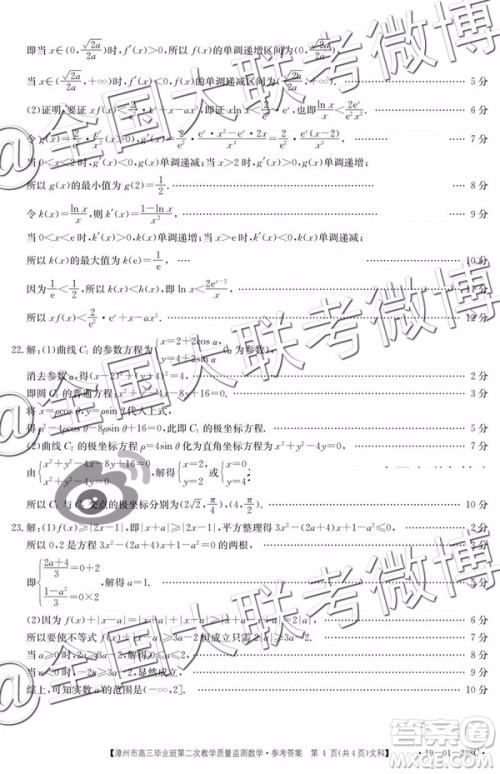 即当 x∈(0, √2a/2a)时,f′(x)>0,所以 f(x)的单调递增区间为(0, √2a/2a)
当 x∈(√2a/2a, +∞)时,f′(x)<0,f(x)的单调递减区间为(√2a/2a, +∞) 5 分
(2)证明:要证 xf(x)<2/e²·eˣ+x-ax³,即证 xln x<2/e²·eˣ,即 ln x/x<2eˣ/e²x²
6 分
当 0<x<2 时,g′(x)<0,g(x)单调递减;当 x>2 时,g′(x)>0,g(x)单调递增;
所以 g(x)的最小值为 g(2)=1/2. 8 分
令 k(x)=ln x/x,则 k′(x)=(1-ln x)/x², 9 分
当 0<x<e 时,k′(x)>0,k(x)单调递增;当 x>e 时,k′(x)<0,k(x)单调递减.
所以 k(x)的最大值为 k(e)=1/e. 10 分
因为 1/e<1/2,所以 ln x<
所以 xf(x)<2/e²·eˣ+x-ax³. 12 分
22.解:(1)曲线 C₁ 的参数方程为{x=2+2cos α, y=4+2sin α (α 为参数),
消去参数 α,得(x-2)²+(y-4)²=4, 2 分
即圆 C₁ 的普通方程 x²+y²-4x-8y+16=0. 3 分
将 x=ρcos θ,y=ρsin θ代入上式,
得
即 C₁ 的极坐标方程. 5 分
(2)曲线 C₂ 的极坐标方程 ρ=4sin θ 化为直角坐标方程为 x²+y²-4y=0, 6 分
由{x²+y²-4x-8y+16=0, x²+y²-4y=0, 解得{x=2, y=2 或{x=0, y=4.
所以 C₁ 与 C₂ 交点的极坐标分别为(2√2, π/4),(4, π/2). 10 分
23.解:(1)f(x)≥|2x-1|,即|x+a|≥|2x-1|,平方整理得 3x²-(2a+4)x+1-a²≤0, 2 分
所以 0,2 是方程 3x²-(2a+4)x+1-a²=0 的两根, 3 分
即{(2a+4)/3=0+2, (1-a²)/3=0×2 解得 a=1. 5 分
6 分
所以要使不等式 f(x)+|x-a|≥3a-2 恒成立,只需 2|a|≥3a-2. 7 分
当 a≥0 时,2a≥3a-2,解得 a≤2, 8 分
当 a<0 时,-2a≥3a-2,显然成立. 9 分
综上,可知实数 a 的范围是(-∞,2]. 10 分
【漳州市高三毕业班第二次教学质量监测数学·参考答案 第 4 页(共 4 页)文科】 ·19-01-238C·
@全国大联考微博
@全国大联考微博